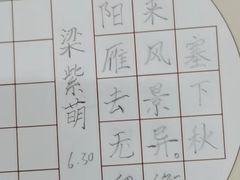 塞下秋
来风景异。
阳雁去无
梁紫萌
6.30